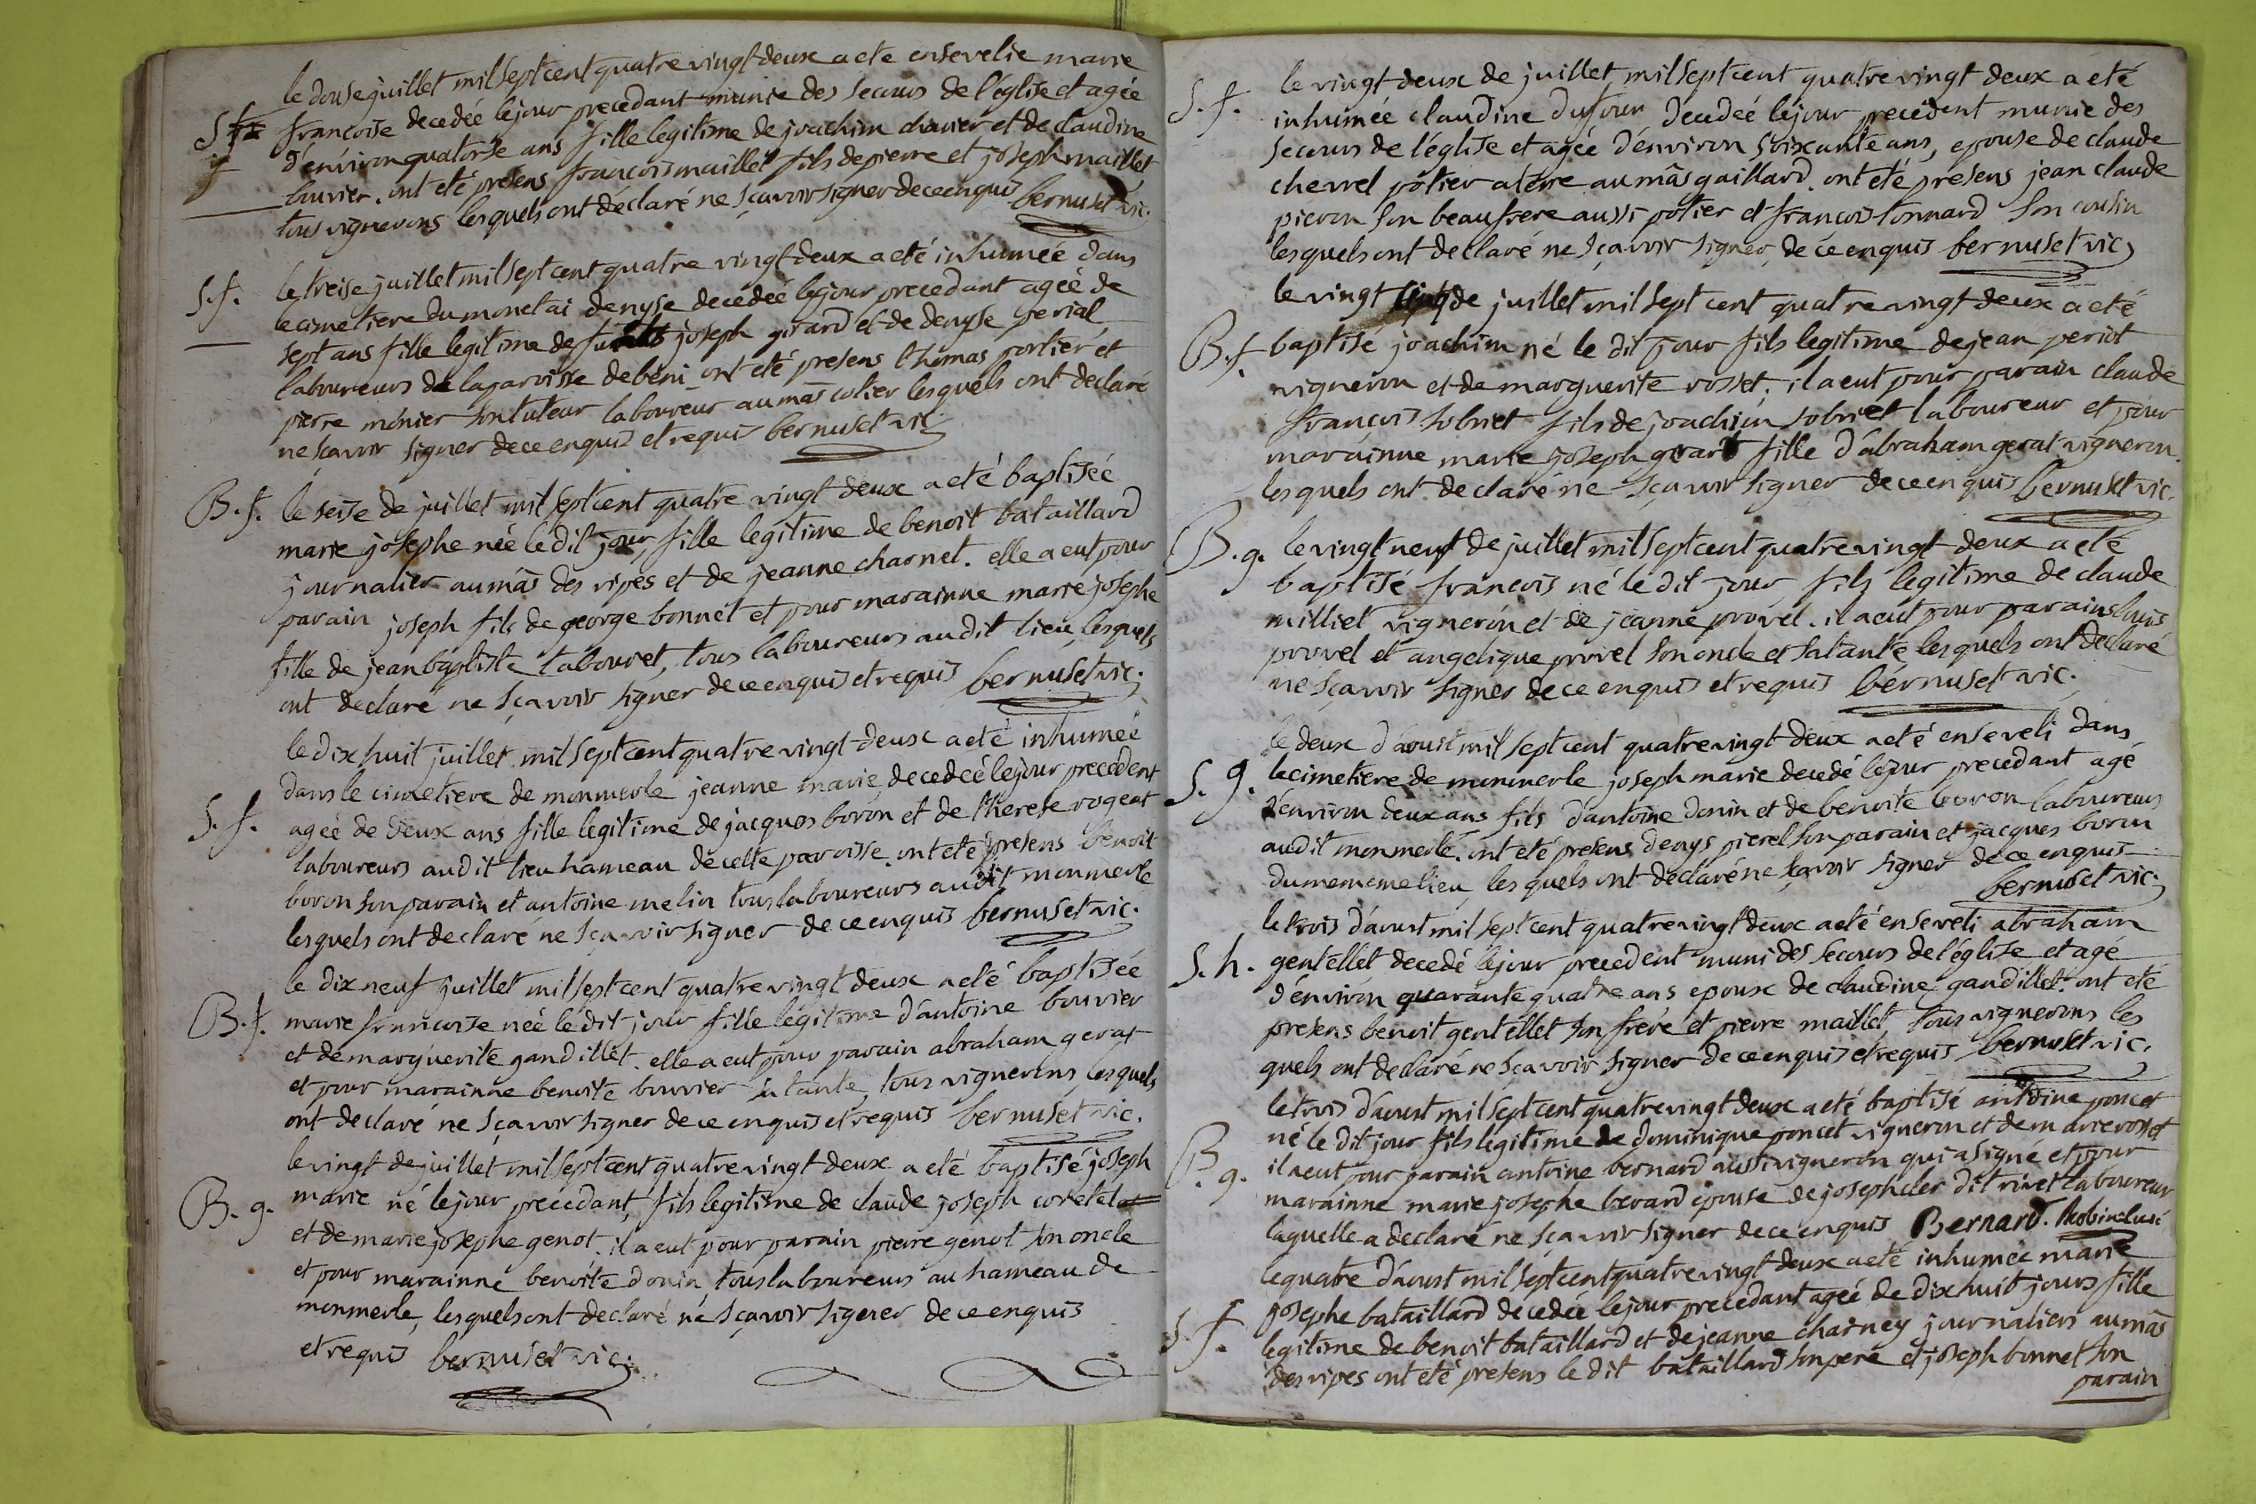 le douse juillet mil sept cent quatre vingt deux a eté ensevelie marie
S. f francoise decedeé le jour precedant munie des secours de l'église et ageé
d'environ quatorse ans fille legitime de joachim chavier et de claudine
lauvier. ont eté presens francois maillet fils de pierre et joseph maillet
tous vignerons lesquels ont déclaré ne sçavoir signer de ce enquis bernuset vic.
S. f. le treise juillet mil sept cent quatre vingt deux a eté inhumeé dans
le cimetiere du monetai denyse decedeé le jour precedant ageé de
sept ans fille legitime de joseph girard et de denyse perial
laboureurs de la paroisse de beni ont eté presens thomas portier et
pierre monier son tuteur laboureur au mas colier lesquels ont declaré
ne sçavoir signer de ce enquis et requis bernuset vic
B. f. le seise de juillet mil sept cent quatre vingt deux a eté baptiseé
marie josephe neé le dit jour, fille legitime de benoit bataillard
journalier au mas des ripes et de jeanne charnet. elle a eut pour
parain joseph fils de george bonnet et pour marainne marie josephe
fille de jean baptiste tabouret, tous laboureurs audit lieu, lesquels
ont declaré ne sçavoir signer de ce enquis et requis bernuset vic.
le dix huit juillet mil sept cent quatre vingt deux a eté inhumeé
dans le cimetiere de monmerle jeanne marie decedeé le jour precedent
S. f. ageé de deux ans fille legitime de jacques boron et de therese rogeat
laboureurs audit lieu hameau de cette paroisse. ont eté presens benoit
boron son parain et antoine melin tous laboureurs audit monmerle
lesquels ont declaré ne sçavoir signer de ce enquis bernuset vic.
le dix neuf juillet mil sept cent quatre vingt deux a eté baptiseé
B. f. marie francoise neé le dit jour fille légitime d'antoine bouvier
et de marguerite gandillet. elle a eut pour parain abraham gerat
et pour marainne benoite bouvier sa tante, tous vignerons lesquels
ont declaré ne sçavoir signer de ce enquis et requis bernuset vic.
le vingt de juillet mil sept cent quatre vingt deux a eté baptisé joseph
B. g. marie né le jour precedant, fils legitime de claude joseph coretel
et de marie josephe genot. il a eut pour parain pierre genot son oncle
et pour marainne benoite donin, tous laboureurs au hameau de
monmerle, lesquels ont declaré ne sçavoir signer de ce enquis
et requis bernuset vic.
S. f. le vingt deux de juillet mil sept cent quatre vingt deux a eté
inhumeé claudine dufour decedeé le jour precedent munie des
secours de l'église et ageé d'environ soixante ans, epouse de claude
chevrel potier a terre au mas gaillard. ont eté presens jean claude
pieron son beaufrere aussi potier et francois tonnard son cousin
lesquels ont declaré ne sçavoir signer de ce enquis bernuset vic
le vingt de juillet mil sept cent quatre vingt deux a eté
B. f. baptisé joachim né le dit jour fils legitime de jean periot
vigneron et de marguerite rosset; il a eut pour parain claude
francois sobriet fils de joachim sobriet laboureur et pour
marainne marie joseph gerat fille d'abraham gerat vigneron
lesquels ont declaré ne sçavoir signer de ce enquis bernuset vic.
B. g. le vingt neuf de juillet mil sept cent quatre vingt deux a eté
baptisé francois né le dit jour, fils legitime de claude
milliet vigneron et de jeanne provel. il a eut pour parains louis
provel et angelique provel son oncle et sa tante, lesquels ont declaré
ne sçavoir signer de ce enquis et requis bernuset vic.
le deux d'aoust mil sept cent quatre vingt deux a eté enseveli dans
S. g. le cimetiere de monmerle joseph marie decedé le jour precedant agé
d'environ deux ans fils d'antoine donin et de benoite boron laboureurs
audit monmerle. ont eté presens denys pierel son parain et jacques boron
du mememe lieu lesquels ont déclaré ne sçavoir signer de ce enquis
bernuset vic.
le trois d'aoust mil sept cent quatre vingt deux a eté enseveli abraham
S. h. gentellet decedé le jour precedent muni des secours de l'église et agé
d'environ quarante quatre ans epoux de claudine gandillet. ont eté
presens benoit gentellet son frere et pierre maillet, tous vignerons les
quels ont declaré ne sçavoir signer de ce enquis et requis bernuset vic.
le trois d'aoust mil sept cent quatre vingt deux a eté baptisé antoine poncet
né le dit jour fils legitime de dominique poncet vigneron et de marie rosset
B. g. il a eut pour parain antoine bernard aussi vigneron qui a signé et pour
marainne marie josephe berard epouse de joseph cler dit rivet laboureur
laquelle a declaré ne sçavoir signer de ce enquis Bernard. Robin curé
le quatre d'aoust mil sept cent quatre vingt deux a eté inhumeé marie
josephe bataillard decedeé le jour precedant ageé de dix huit jours fille
S. f. legitime de benoit bataillard et de jeanne charney journaliers au mas
des ripes ont eté presens le dit bataillard son pere et joseph bonnet son
parain